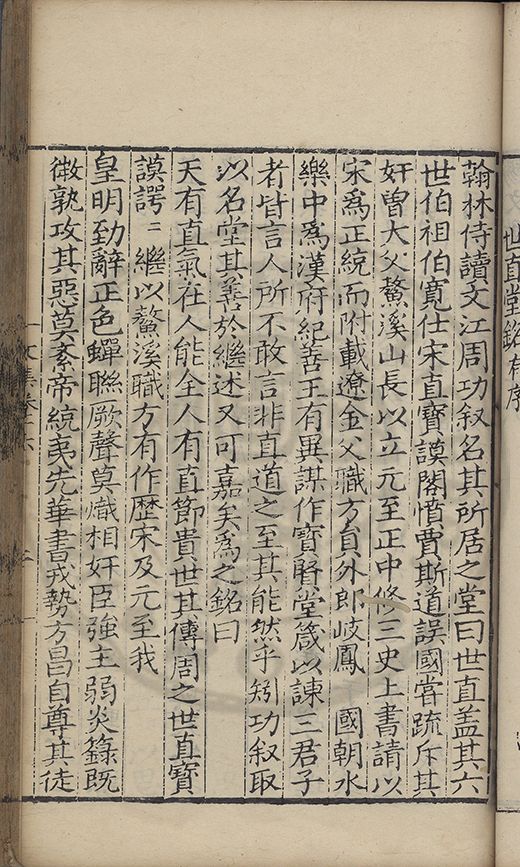 世直堂銘有序
翰林侍讀文江周功叙名其所居之堂曰世直盖其六
世伯祖伯寬仕宋直寶謨閣憤賈斯道誤國嘗疏斥其
奸曾大父鰲溪山長以立元至正中修三史上書請以
宋為正統而附載遼金父職方貟外郎岐鳳 國朝永
樂中為漢府紀善王有異謀作寶賢堂箴以諫三君子
者皆言人所不敢言非直道之至其能然乎矧功叙取
以名堂其善於繼述又可嘉矣為之銘曰
天有直氣在人能全人有直節貴世其傳周之世直寶
謨諤〻繼以鰲溪職方有作歴宋及元至我
皇明勁辭正色蟬聯厥聲莫熾相奸臣強主弱炎籙旣
微孰攻其惡莫紊帝統夷先華書戎勢方昌自尊其徒